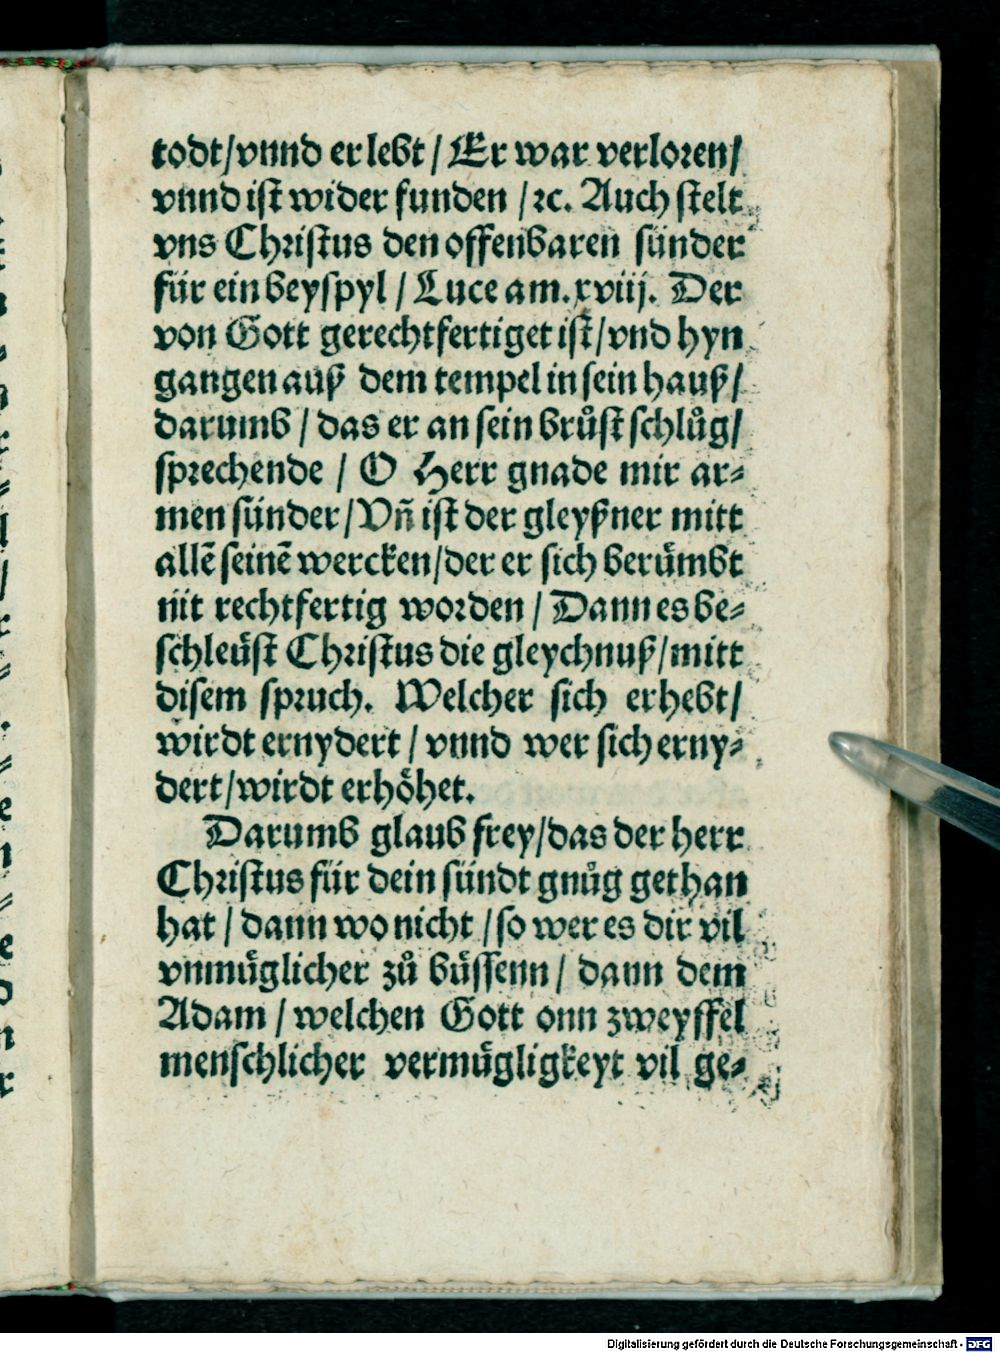 todt/vnnd er lebt / Er war verloren/
vnnd ist wider funden /ꝛc. Auch stelt
vns Christus den offenbaren sünder
für ein beyspyl / Luce am.xviij. Der
von Gott gerechtfertiget ist/vnd hyn
gangen auß dem tempel in sein hauß/
darumb / das er an sein brůst schlůg/
sprechende / O Herr gnade mir ar⸗
men sünder/Vñ ist der gleyßner mitt
allē seinē wercken/der er sich berůmbt
nit rechtfertig worden / Dann es be⸗
schleůst Christus die gleychnuß/mitt
disem spruch. Welcher sich erhebt/
wirdt ernydert / vnnd wer sich erny⸗
dert/wirdt erhöhet.
Darumb glaub frey/das der herr
Christus für dein sündt gnůg gethan
hat / dann wo nicht /so wer es dir vil
vnmüglicher zů büssenn/ dann dem
Adam / welchen Gott onn zweyffel
menschlicher vermügligkeyt vil ge⸗
Digitalisierung gefördert durch die Deutsche Forschungsgemeinschaft - DFG